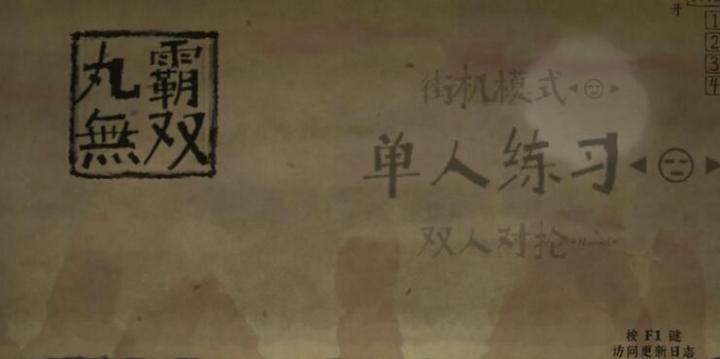 霸丸
双無
街机模式
单人练习
双人对抡
Normal
开
1
2
3
4
按 F1 键
访问更新日志